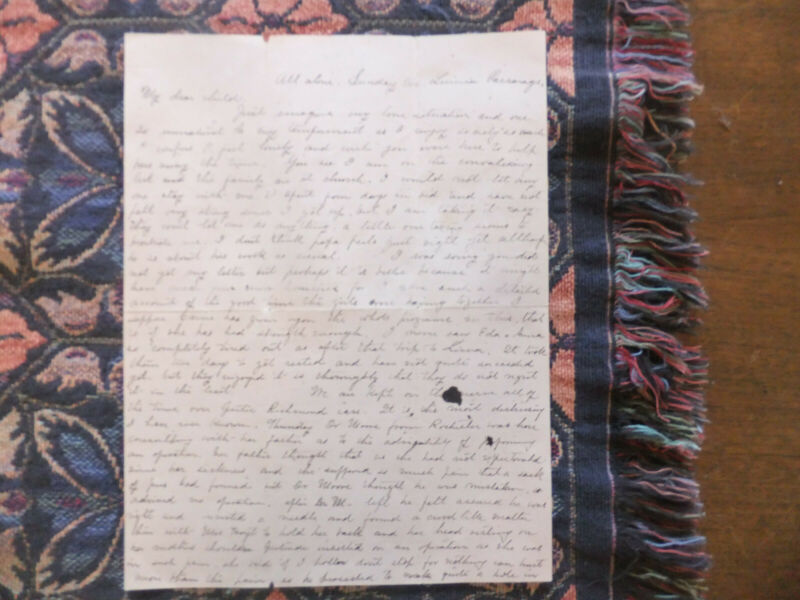 All alone. Sunday Eve Livonia Parsonage.
My dear child,
Just imagine my lone situation and one
so unnatural to my temperament as I enjoy so
I confess I feel lonely and wish you were here to help
away the time. You see I am on the convalescing
list and the family are at church. I would not let any
one stay with me. I spent four days in bed and have not
felt very strong since I got up, but I am taking it easy
They wont let me do anything, a little one seems to
me. I don't think papa feels just right yet although
he is about his work as usual. I was sorry you did
not get my letter but perhaps it is better because it might
have made you for I gave such a detailed
account of the good time the girls are having together. I
suppose has given you the whole programe
if she has had strength enough. I never saw Eda & Anna
so completely tired out as after that trip to Lima. It took
them two days to get rested and have not quite succeeded
yet. but they enjoyed it so thoroughly that they do not regret
it in the least. We are kept on the nerve all of
the time over Gertie Richmond case. It is the most distressing
I have ever known. Thursday Dr Moore from Rochester was here
consulting with her father as to the advisability of performing
an operation. Her father thought that as she had not
since her sickness and she suffered so much pain that a sack
of pus had formed but Dr Moore thought he was mistaken, &
advised no operation. After Dr M. left he felt assured he was
right and a needle and found a matter
then with Mrs to hold her back and her head resting on
her shoulder Gertrude insisted on an operation as she was
in such pain. she said if I holler don't stop for nothing can hurt
more than this pain, so he proceeded to make quite a hole in